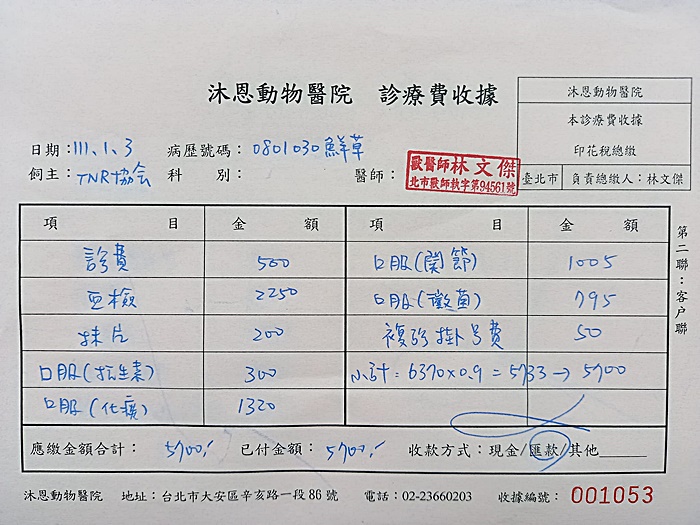 沐恩動物醫院 診療費收據
沐恩動物醫院
本診療費收據
印花稅總繳
臺北市 負責總繳人：林文傑
日期：111、1、3 病歷號碼：0801030 鮮草
飼主：TNR協会 科 別： 醫師： 獸醫師林文傑 北市獸師執字第94561號
項 目 金 額 項 目 金 額
診費 500 口服(関節) 1005
血檢 2250 口服(黴菌) 795
抹片 200 複診掛号費 50
口服(抗生素) 300 小計 = 6370×0.9 = 5733 → 5700
口服(化痰) 1320
應繳金額合計： 5700.- 已付金額： 5700.- 收款方式：現金/匯款/其他______
第二聯：客戶聯
沐恩動物醫院 地址：台北市大安區辛亥路一段86號 電話：02-23660203 收據編號： 001053